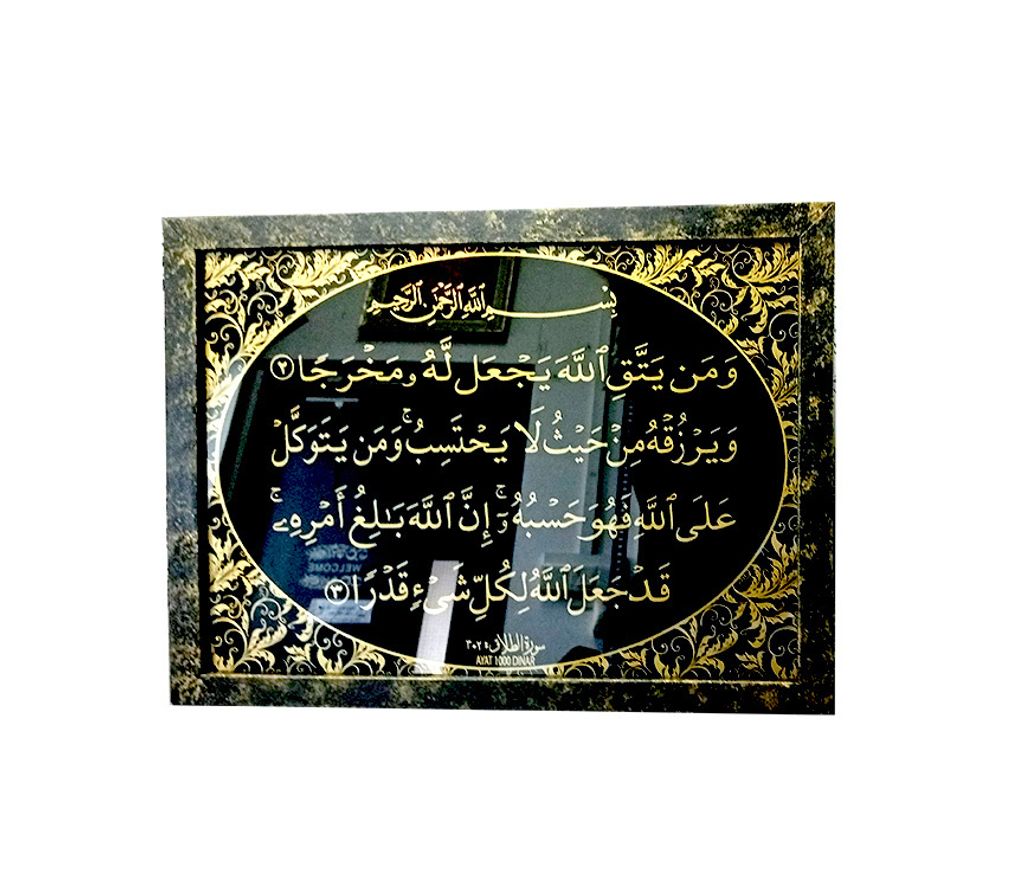 بِسْمِ اللَّهِ الرَّحْمَٰنِ الرَّحِيمِ
وَمَن يَتَّقِ ٱللَّهَ يَجْعَل لَّهُۥ مَخْرَجًا ٢
وَيَرْزُقْهُ مِنْ حَيْثُ لَا يَحْتَسِبُ ۚ وَمَن يَتَوَكَّلْ
عَلَى ٱللَّهِ فَهُوَ حَسْبُهُۥٓ ۚ إِنَّ ٱللَّهَ بَـٰلِغُ أَمْرِهِۦ ۚ
قَدْ جَعَلَ ٱللَّهُ لِكُلِّ شَىْءٍ قَدْرًا ٣
سورة الطلاق: ٢-٣
AYAT 1000 DINAR
WELCOME